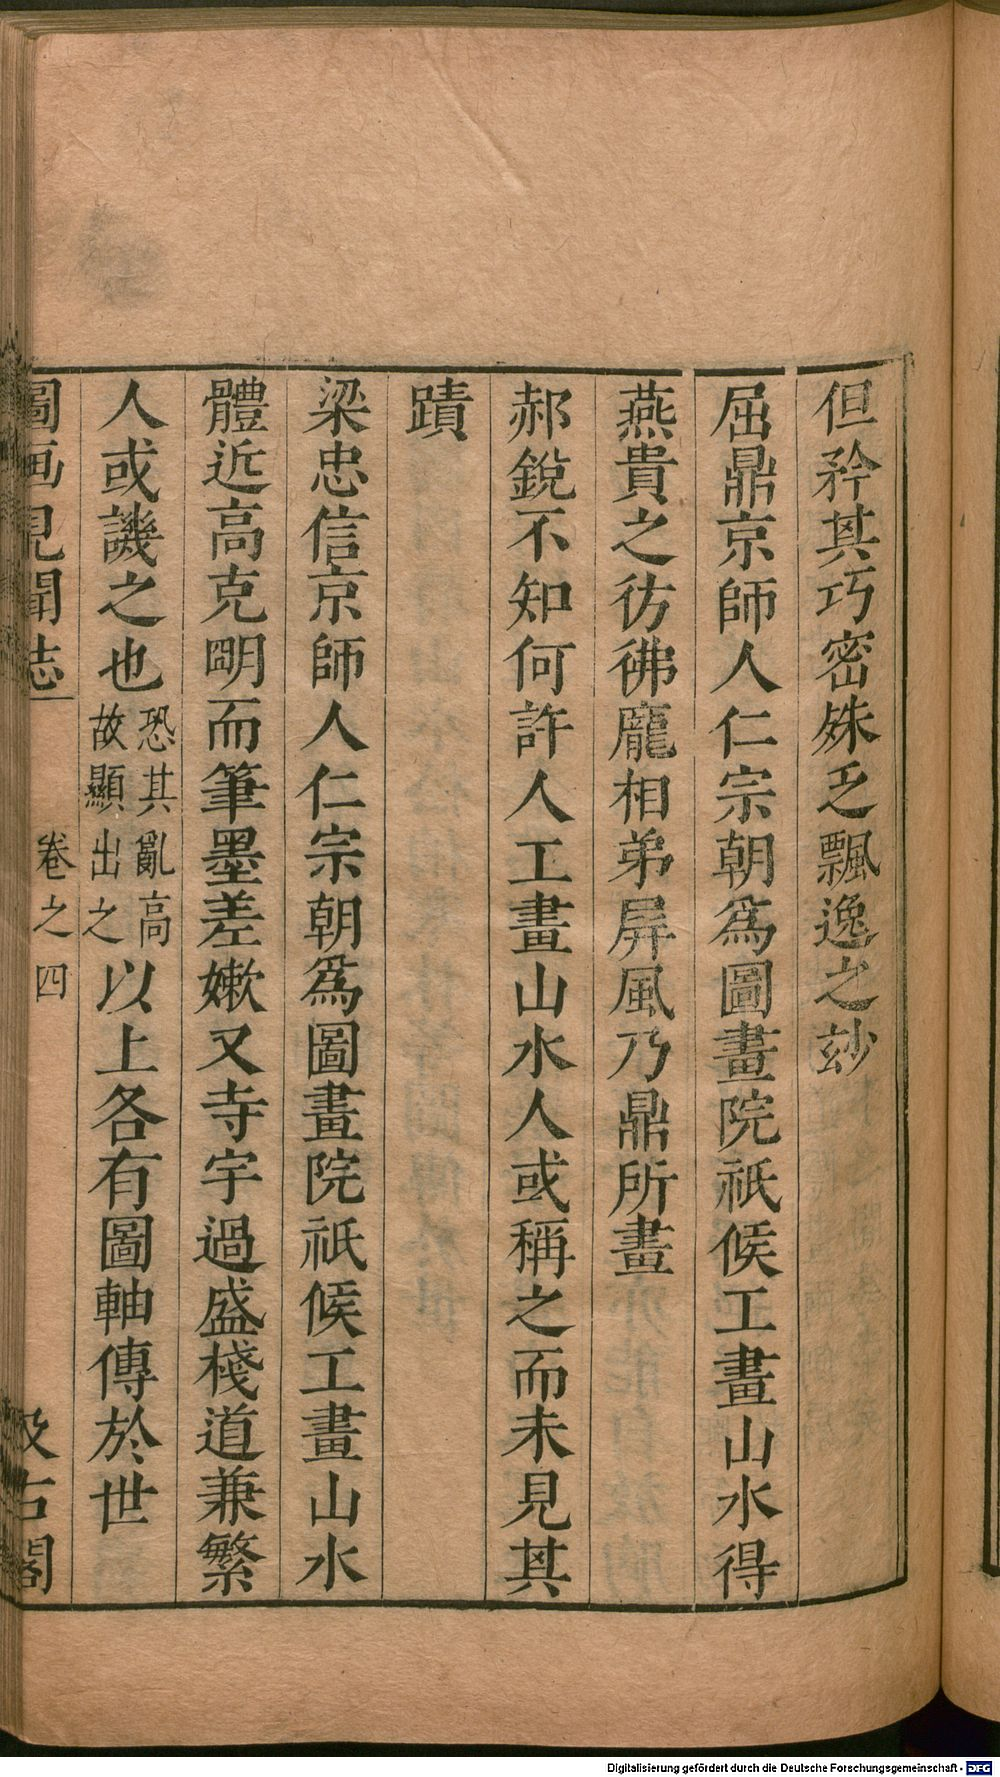 但矜其巧密殊乏飄逸之玅
屈鼎京師人仁宗朝爲圖畫院祇候工畫山水得
燕貴之彷彿龐相弟屏風乃鼎所畫
郝銳不知何許人工畫山水人或稱之而未見其
蹟
梁忠信京師人仁宗朝爲圖畫院祇候工畫山水
體近高克明而筆墨差嫩又寺宇過盛棧道兼繁
人或譏之也恐其亂高故顯出之以上各有圖軸傳於世
圖画見聞志 卷之四 汲古閣
Digitalisierung gefördert durch die Deutsche Forschungsgemeinschaft - DFG